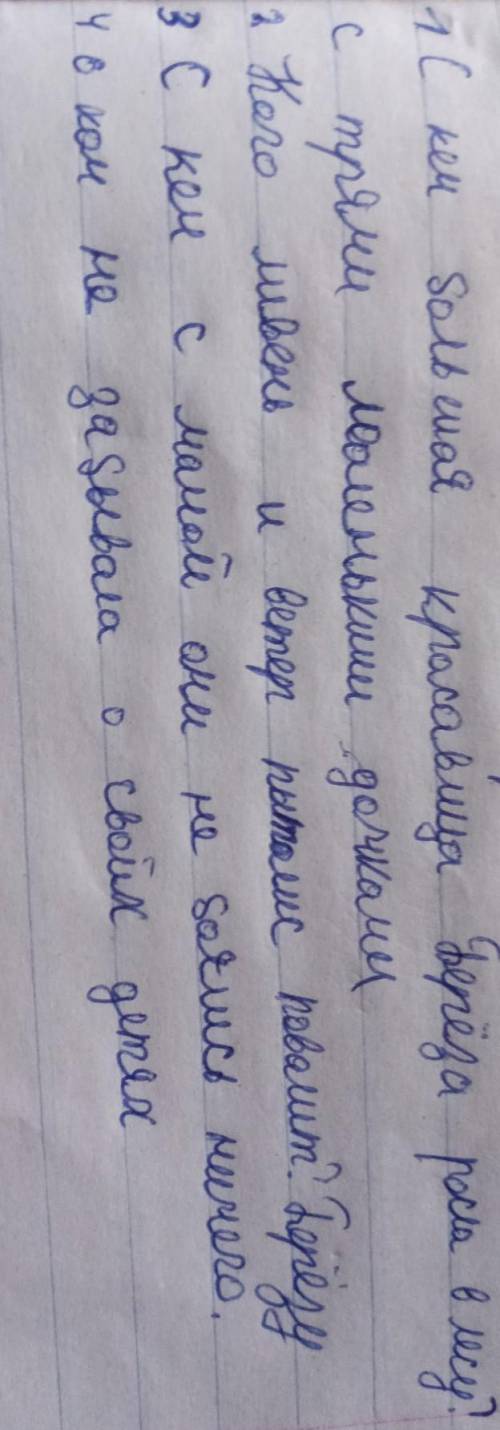 1 С кем большая красавица берёза росла в лесу?
с трями мааленькими дочками
2 Кого ливень и ветер пыталис повалит? Берёзу
3 С кем с мамой они не боялись ничего.
4 о ком не забывала о свойх детях